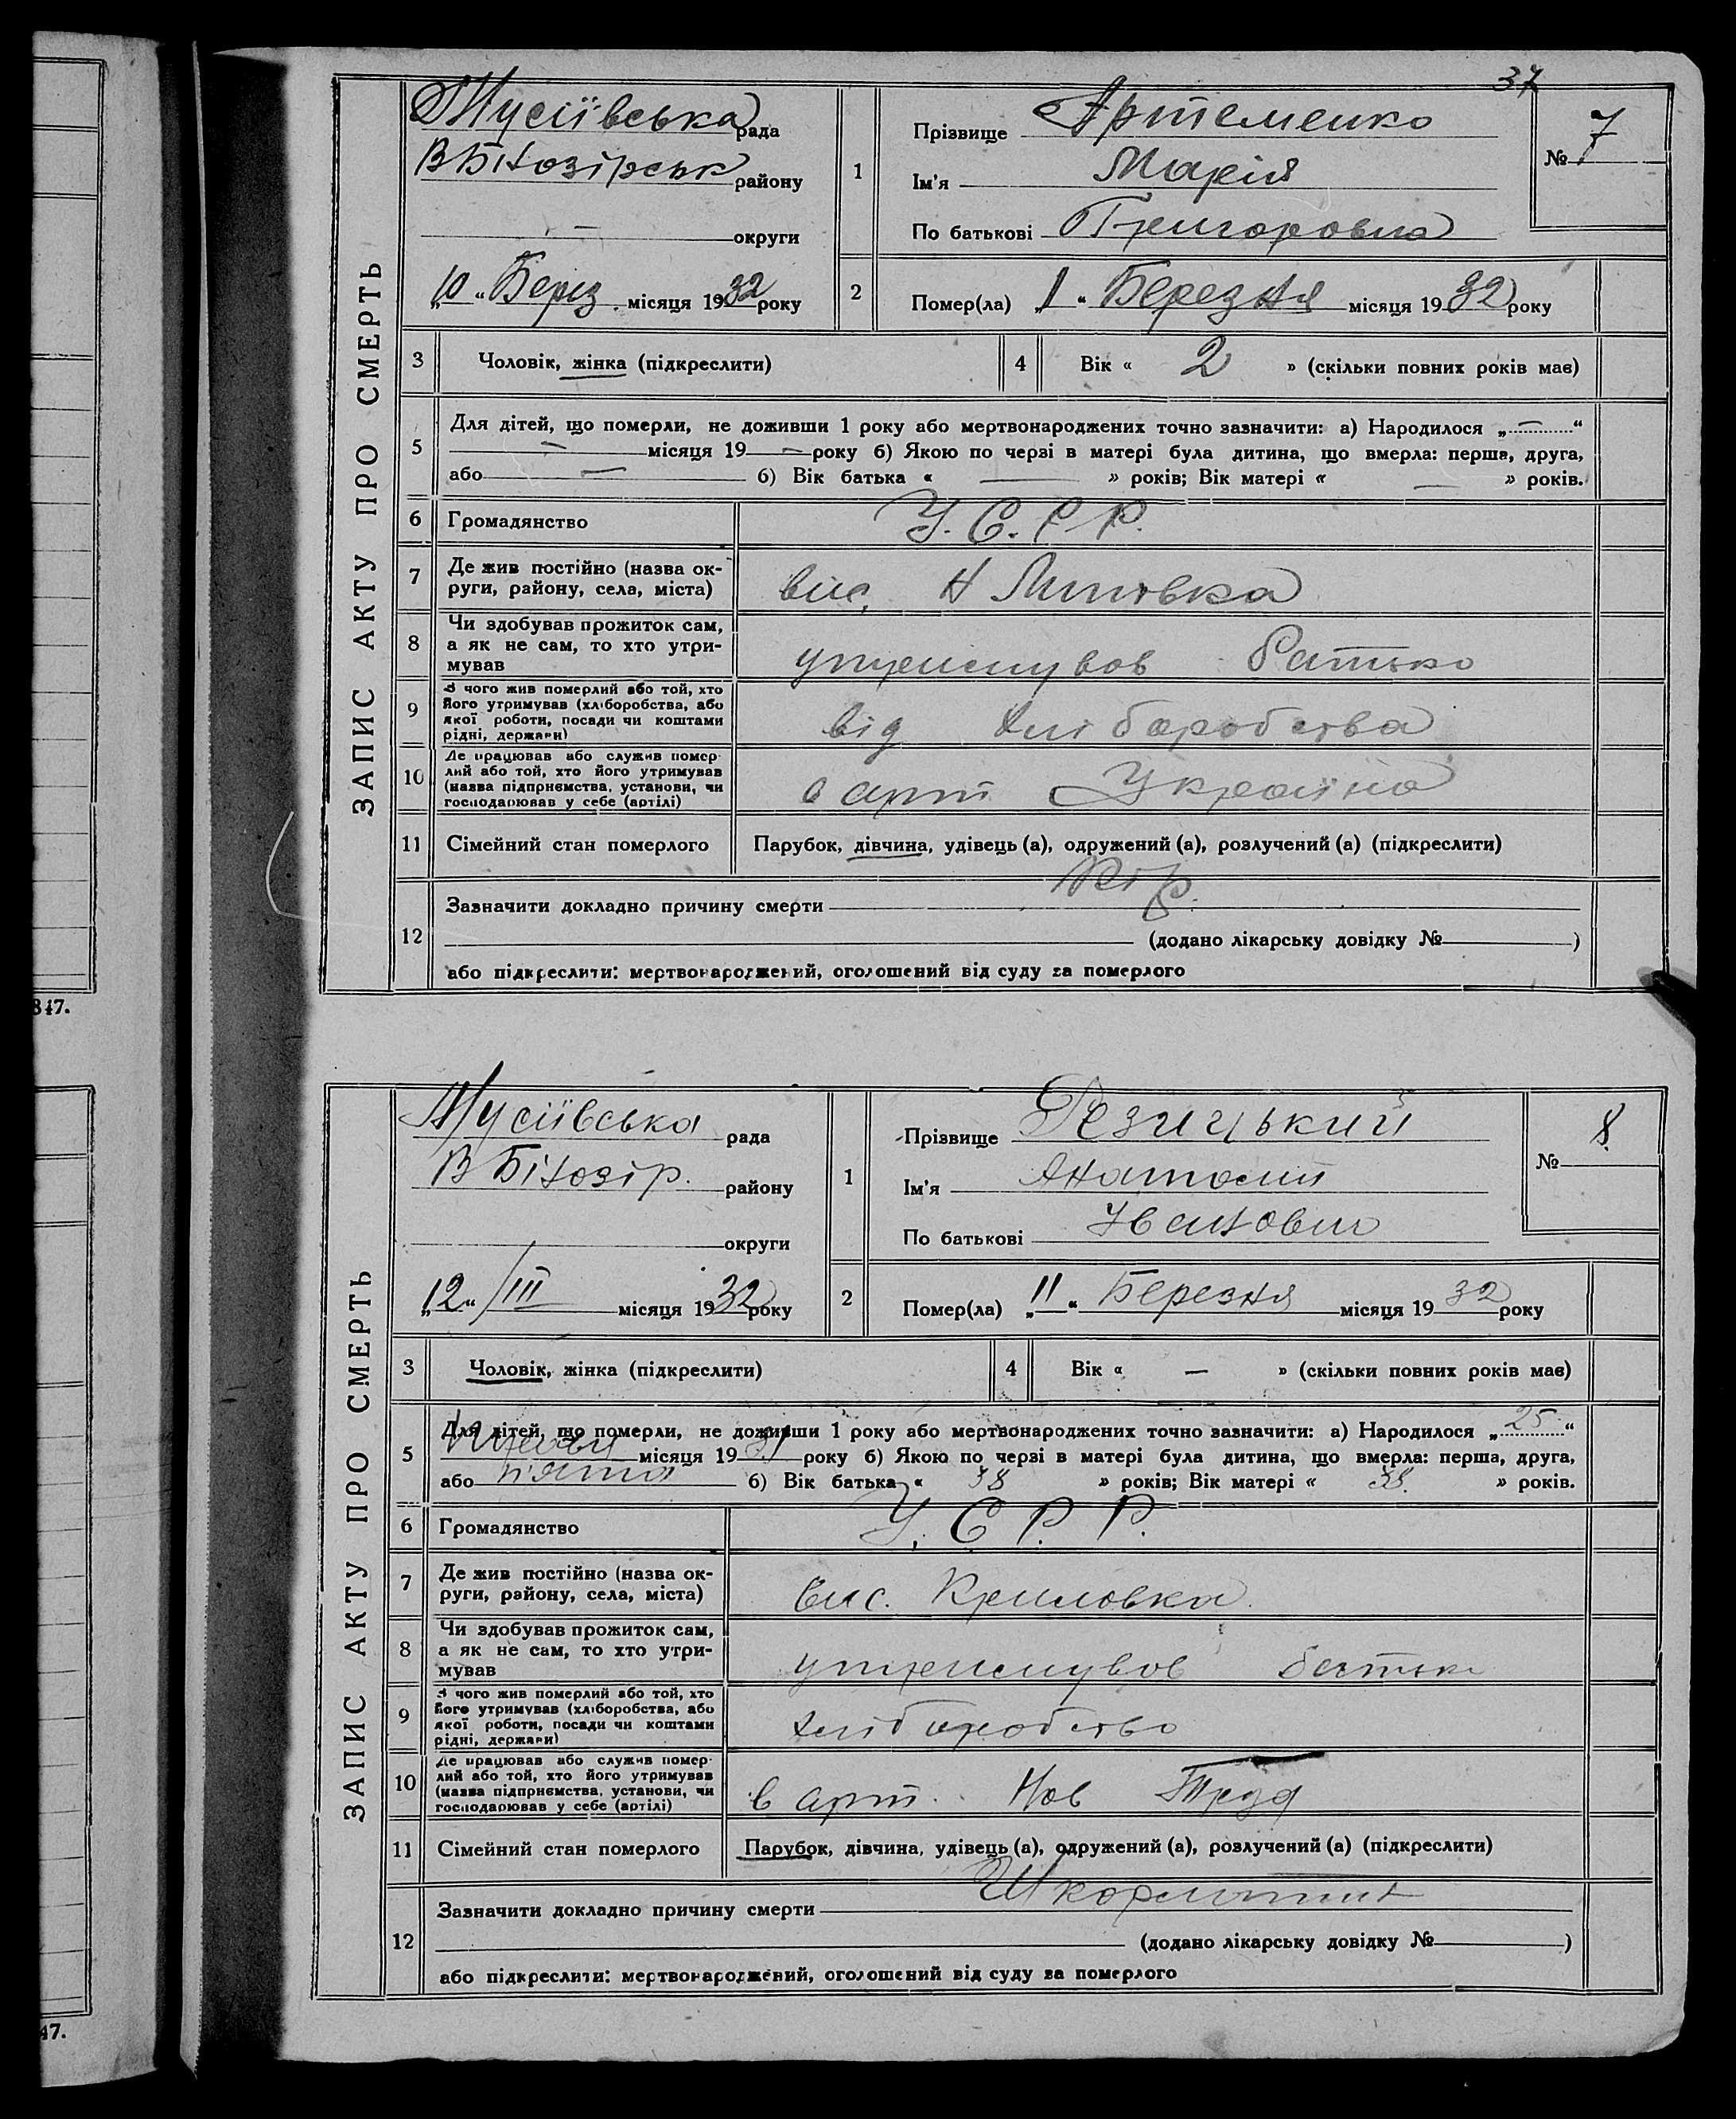 847.
47.
37
ЗАПИС АКТУ ПРО СМЕРТЬ
Мусіївська рада
ВБілозірськ району
— округи
„10“ Беріз. місяця 1932 року
1
Прізвище Артеменко
Ім'я Марія
По батькові Григоровна
№ 7
2
Помер(ла) „1“ Березня місяця 1932 року
3 Чоловік, жінка (підкреслити)
4 Вік « 2 » (скільки повних років має)
5
Для дітей, що померли, не доживши 1 року або мертвонароджених точно зазначити: а) Народилося „—“
— місяця 19 — року б) Якою по черзі в матері була дитина, що вмерла: перша, друга,
або — б) Вік батька « — » років; Вік матері « — » років.
6 Громадянство У.С.Р.Р.
7 Де жив постійно (назва округи, району, села, міста) вис. Н
8 Чи здобував прожиток сам, а як не сам, то хто утримував утримував батько
9 З чого жив померлий або той, хто його утримував (хліборобства, або якої роботи, посади чи коштами рідні, держави) від хліборобства
10 Де працював або служив померлий або той, хто його утримував (назва підприємства, установи, чи господарював у себе (артілі) в арт Україна
11 Сімейний стан померлого Парубок, дівчина, удівець (а), одружений (а), розлучений (а) (підкреслити)
12
Зазначити докладно причину смерти Кір
(додано лікарську довідку № )
або підкреслити: мертвонароджений, оголошений від суду за померлого
ЗАПИС АКТУ ПРО СМЕРТЬ
Мусіївська рада
ВБілозір. району
округи
„12“ III місяця 1932 року
1
Прізвище Резицький
Ім'я Анатолий
По батькові Иванович
№ 8
2
Помер(ла) „11“ Березня місяця 1932 року
3 Чоловік, жінка (підкреслити)
4 Вік « — » (скільки повних років має)
5
Для дітей, що померли, не доживши 1 року або мертвонароджених точно зазначити: а) Народилося „25“
місяця 1931 року б) Якою по черзі в матері була дитина, що вмерла: перша, друга,
або п'ята б) Вік батька « 38 » років; Вік матері « 38. » років.
6 Громадянство У.С.Р.Р.
7 Де жив постійно (назва округи, району, села, міста) вис. Криловка
8 Чи здобував прожиток сам, а як не сам, то хто утримував утримував батько
9 З чого жив померлий або той, хто його утримував (хліборобства, або якої роботи, посади чи коштами рідні, держави) хліборобство
10 Де працював або служив померлий або той, хто його утримував (назва підприємства, установи, чи господарював у себе (артілі) в арт. Нов Труд
11 Сімейний стан померлого Парубок, дівчина, удівець (а), одружений (а), розлучений (а) (підкреслити)
12
Зазначити докладно причину смерти
(додано лікарську довідку № )
або підкреслити: мертвонароджений, оголошений від суду за померлого